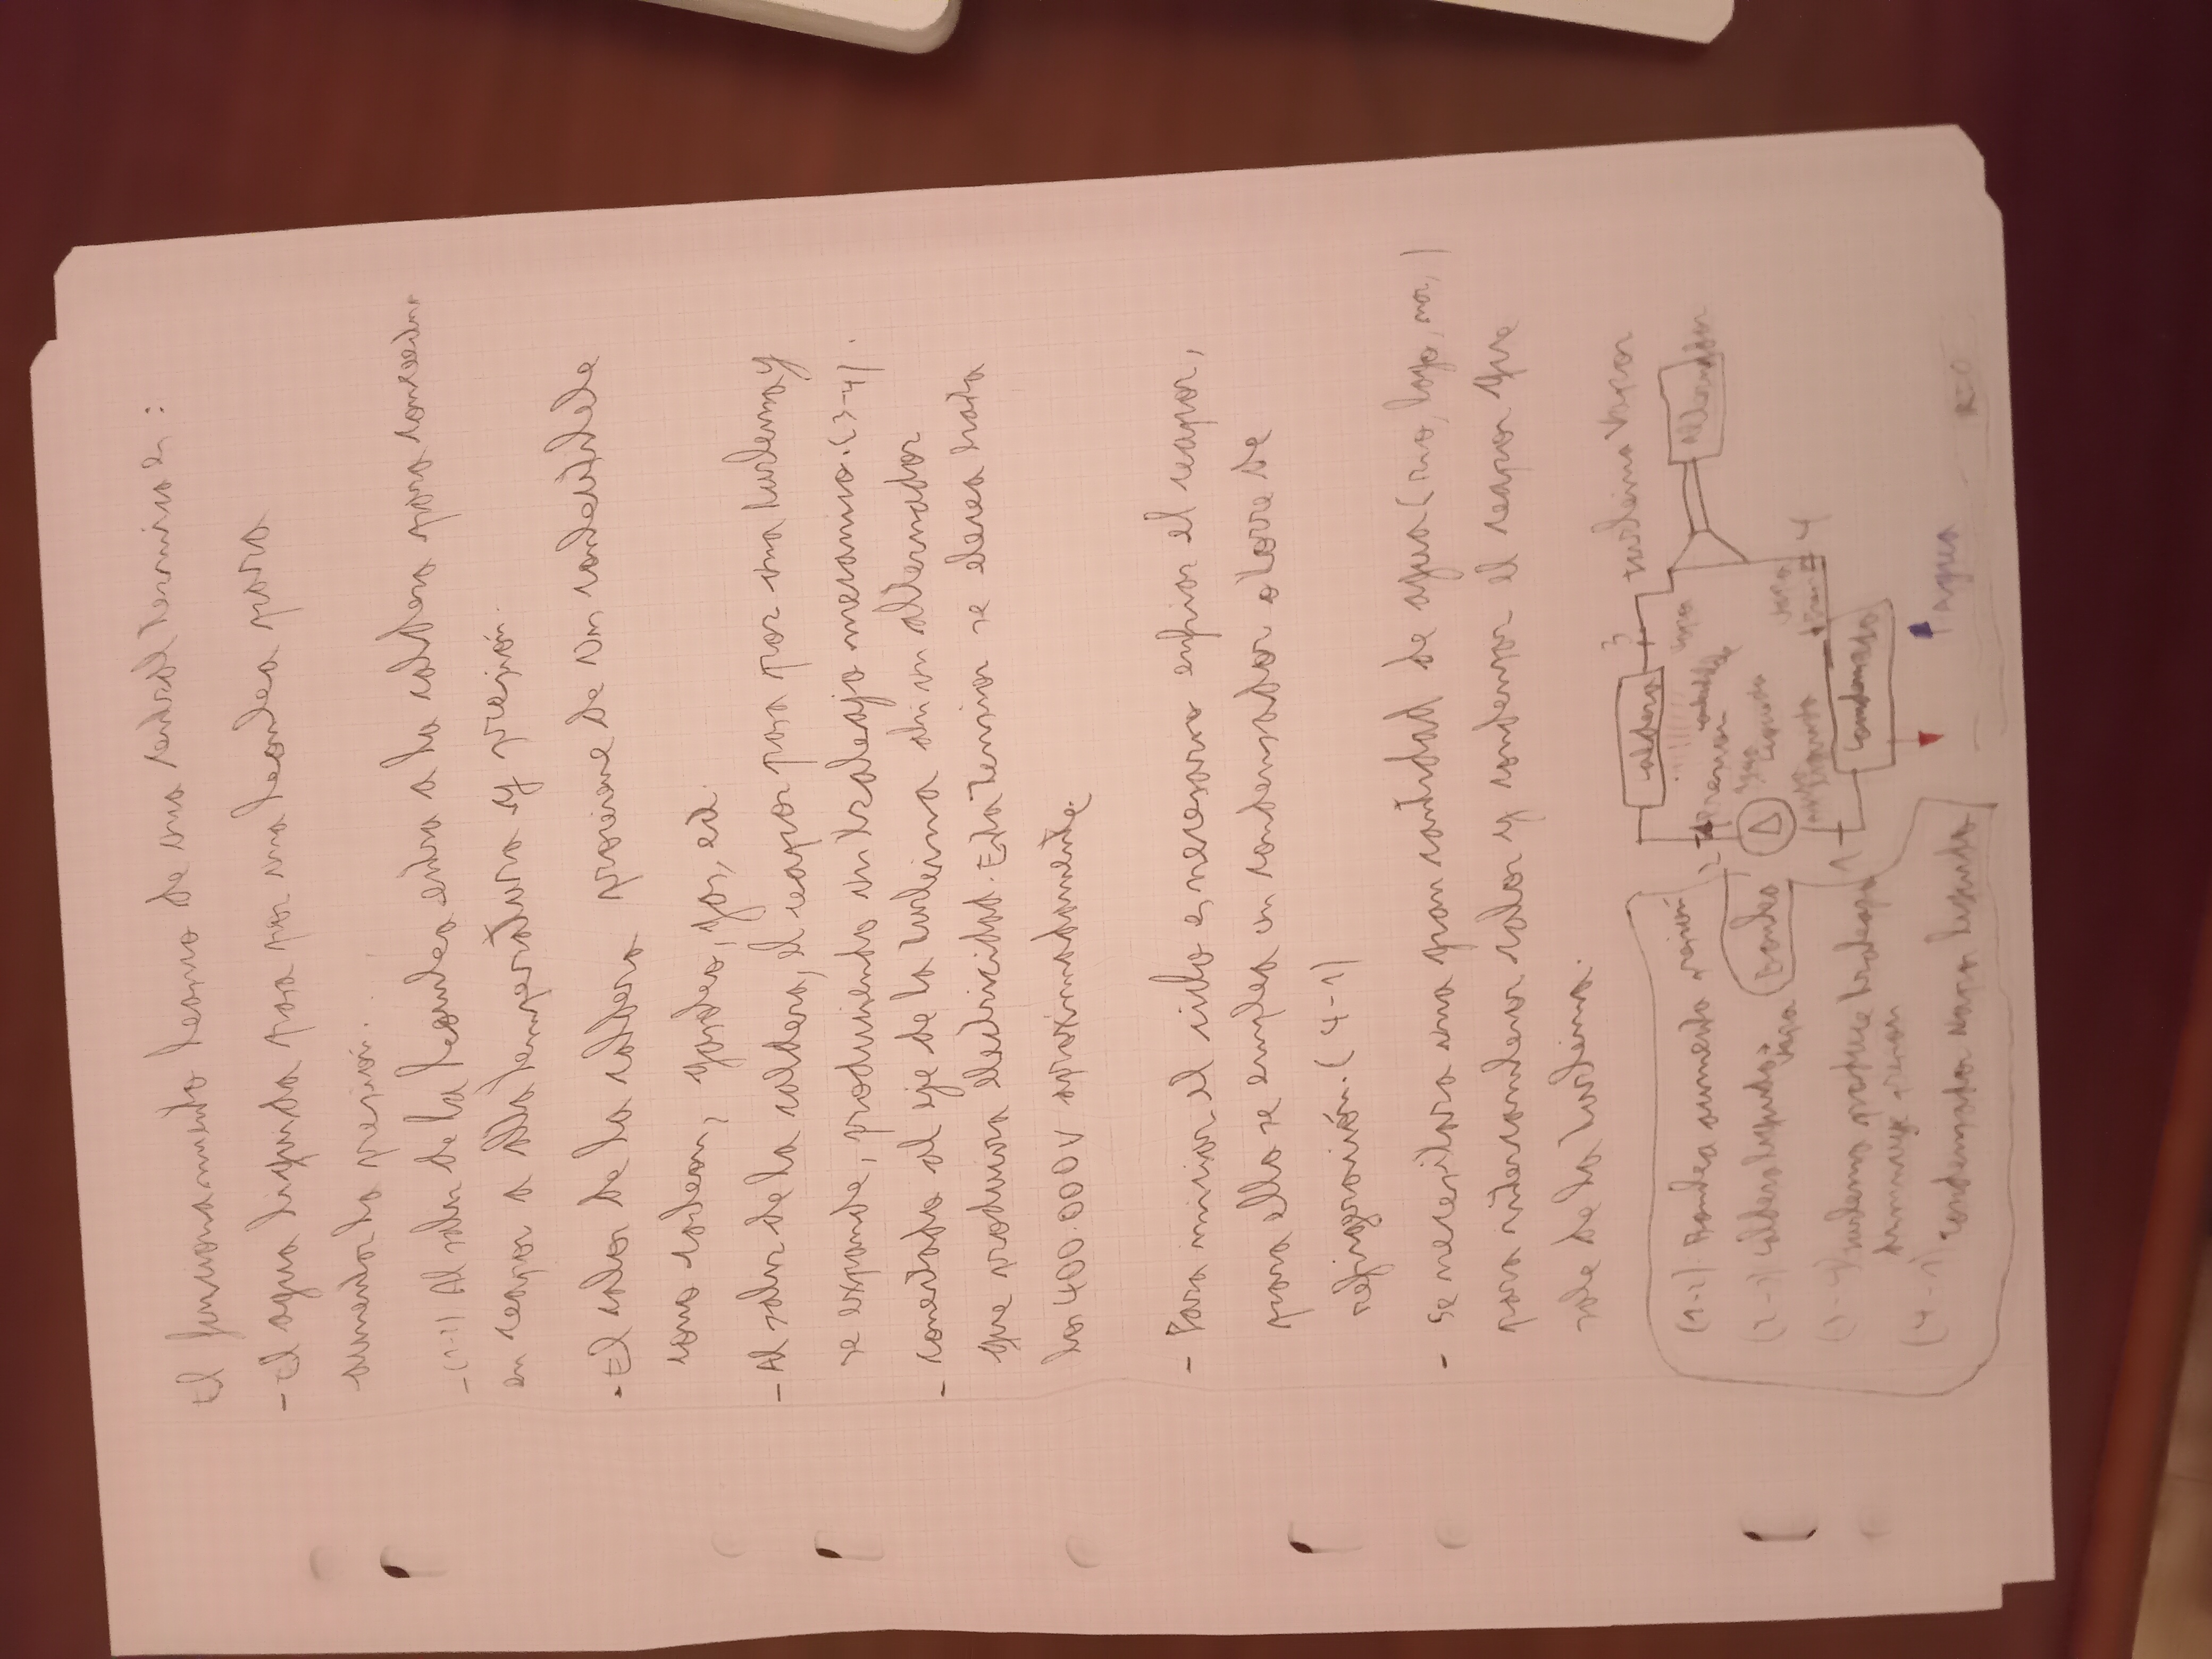 El funcionamiento teorico de una central termica es:
- El agua liquida pasa por una bomba para
aumentar la presión.
- (1-2) Al salir de la bomba entra a la caldera para convertirse
en vapor a alta temperatura y presión.
- El calor de la caldera proviene de un combustible
como carbon, gasoleo, gas, etc.
- Al salir de la caldera, el vapor pasa por una turbina y
se expande, produciendo un trabajo mecanico. (3-4).
- Conectado al eje de la turbina ahi un alternador
que producira electricidad. Esta tension se eleva hasta
los 400.000V aproximadamente.
- Para iniciar el ciclo es necesario enfriar el vapor,
para ello se emplea un condensador o torre de
refrigeración. (4-1)
- Se necesitara una gran cantidad de agua (rio, lago, mar,)
para intercambiar calor y condensar el vapor que
sale de la turbina.
(1-2) Bomba aumenta presión
(2-3) Caldera liquido a
(3-4) turbina produce trabajo y
disminuye presion
(4-1) Condensador vapor liquido
Bomba
Caldera
3
turbina vapor
Alternador
2
presion
agua
liquida
1
Condensador
4
Agua
RIO